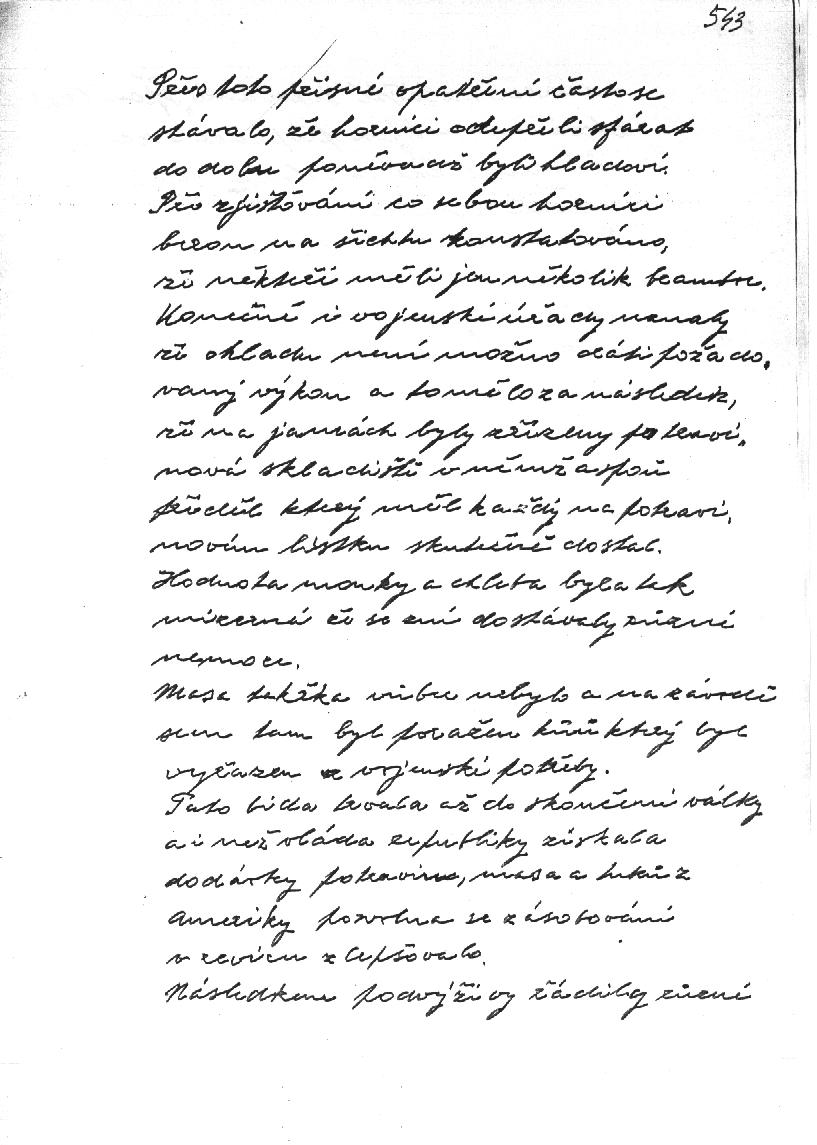 543
Přes toto přísné opatření často se
stávalo, že horníci odepřeli sfárat
do dolu poněvadž byli hladoví.
Při zjišťování co sebou horníci
berou na šichtu konstatováno,
že někteří měli jen několik brambor.
Konečně i vojenské úřady uznaly
že o hladu není možno dáti požado-
vaný výkon a to mělo za následek,
že na jamách byly zřízeny potravi-
nová skladiště v němž aspoň
příděl který měl každý na potravi-
novém lístku skutečně dostal.
Hodnota mouky a chleba byla tak
mizerná že se z ní dostávaly různé
nemoce.
Masa takřka vůbec nebylo a na závodě
sem tam byl poražen kůň který byl
vyřazen z vojenské potřeby.
Tato bída trvala až do skončení války
a i než vláda republiky získala
dodávky potravin, masa a tuků z
Ameriky pozvolna se zásobování
v revíru zlepšovalo.
Následkem podvýživy řádily různé